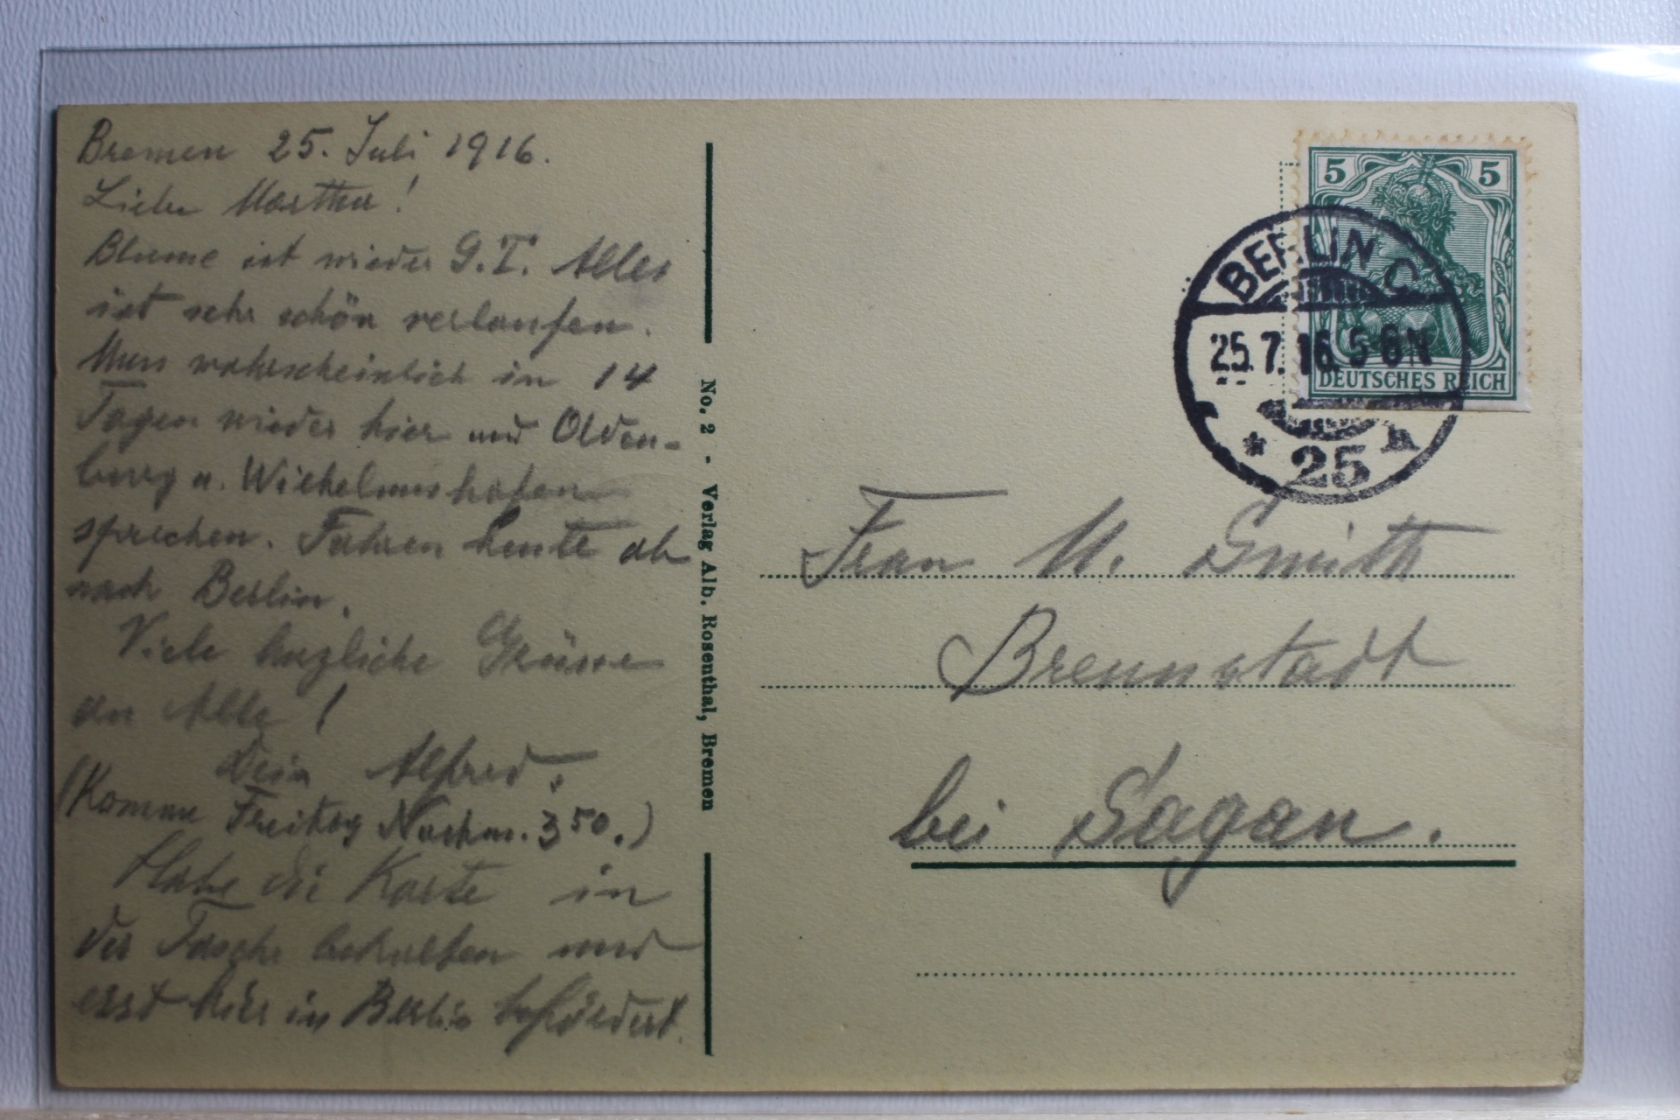 Bremen 25. Juli 1916.
Liebe Martha!
Blume ist wieder G.T. Alles
ist sehr schön verlaufen.
Muss wahrscheinlich in 14
Tagen wieder hier und Olden-
burg u. Wilhelmshafen
sprechen. Fahren heute ab
nach Berlin.
Viele herzliche Grüsse
an Alle!
Dein Alfred.
(Komme Freitag Nachm. 3 50.)
Habe die Karte in
der Tasche behalten und
erst hier in Berlin befördert.
No. 2 - Verlag Alb. Rosenthal, Bremen
5 5
DEUTSCHES REICH
BERLIN C
25.7.16. 5-6 N
* 25 h
Frau M. Smith
Brennstadt
bei Sagan.